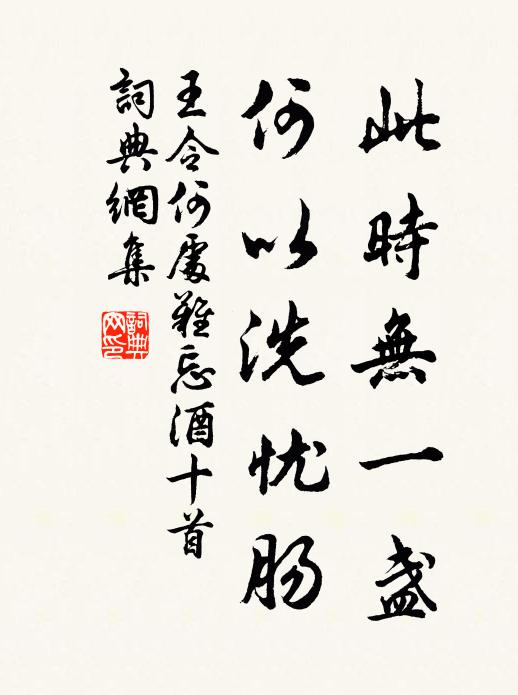 此時無一盏
何以洗忧肠
王令何處難忘酒十首
詞典網集
詞典网印